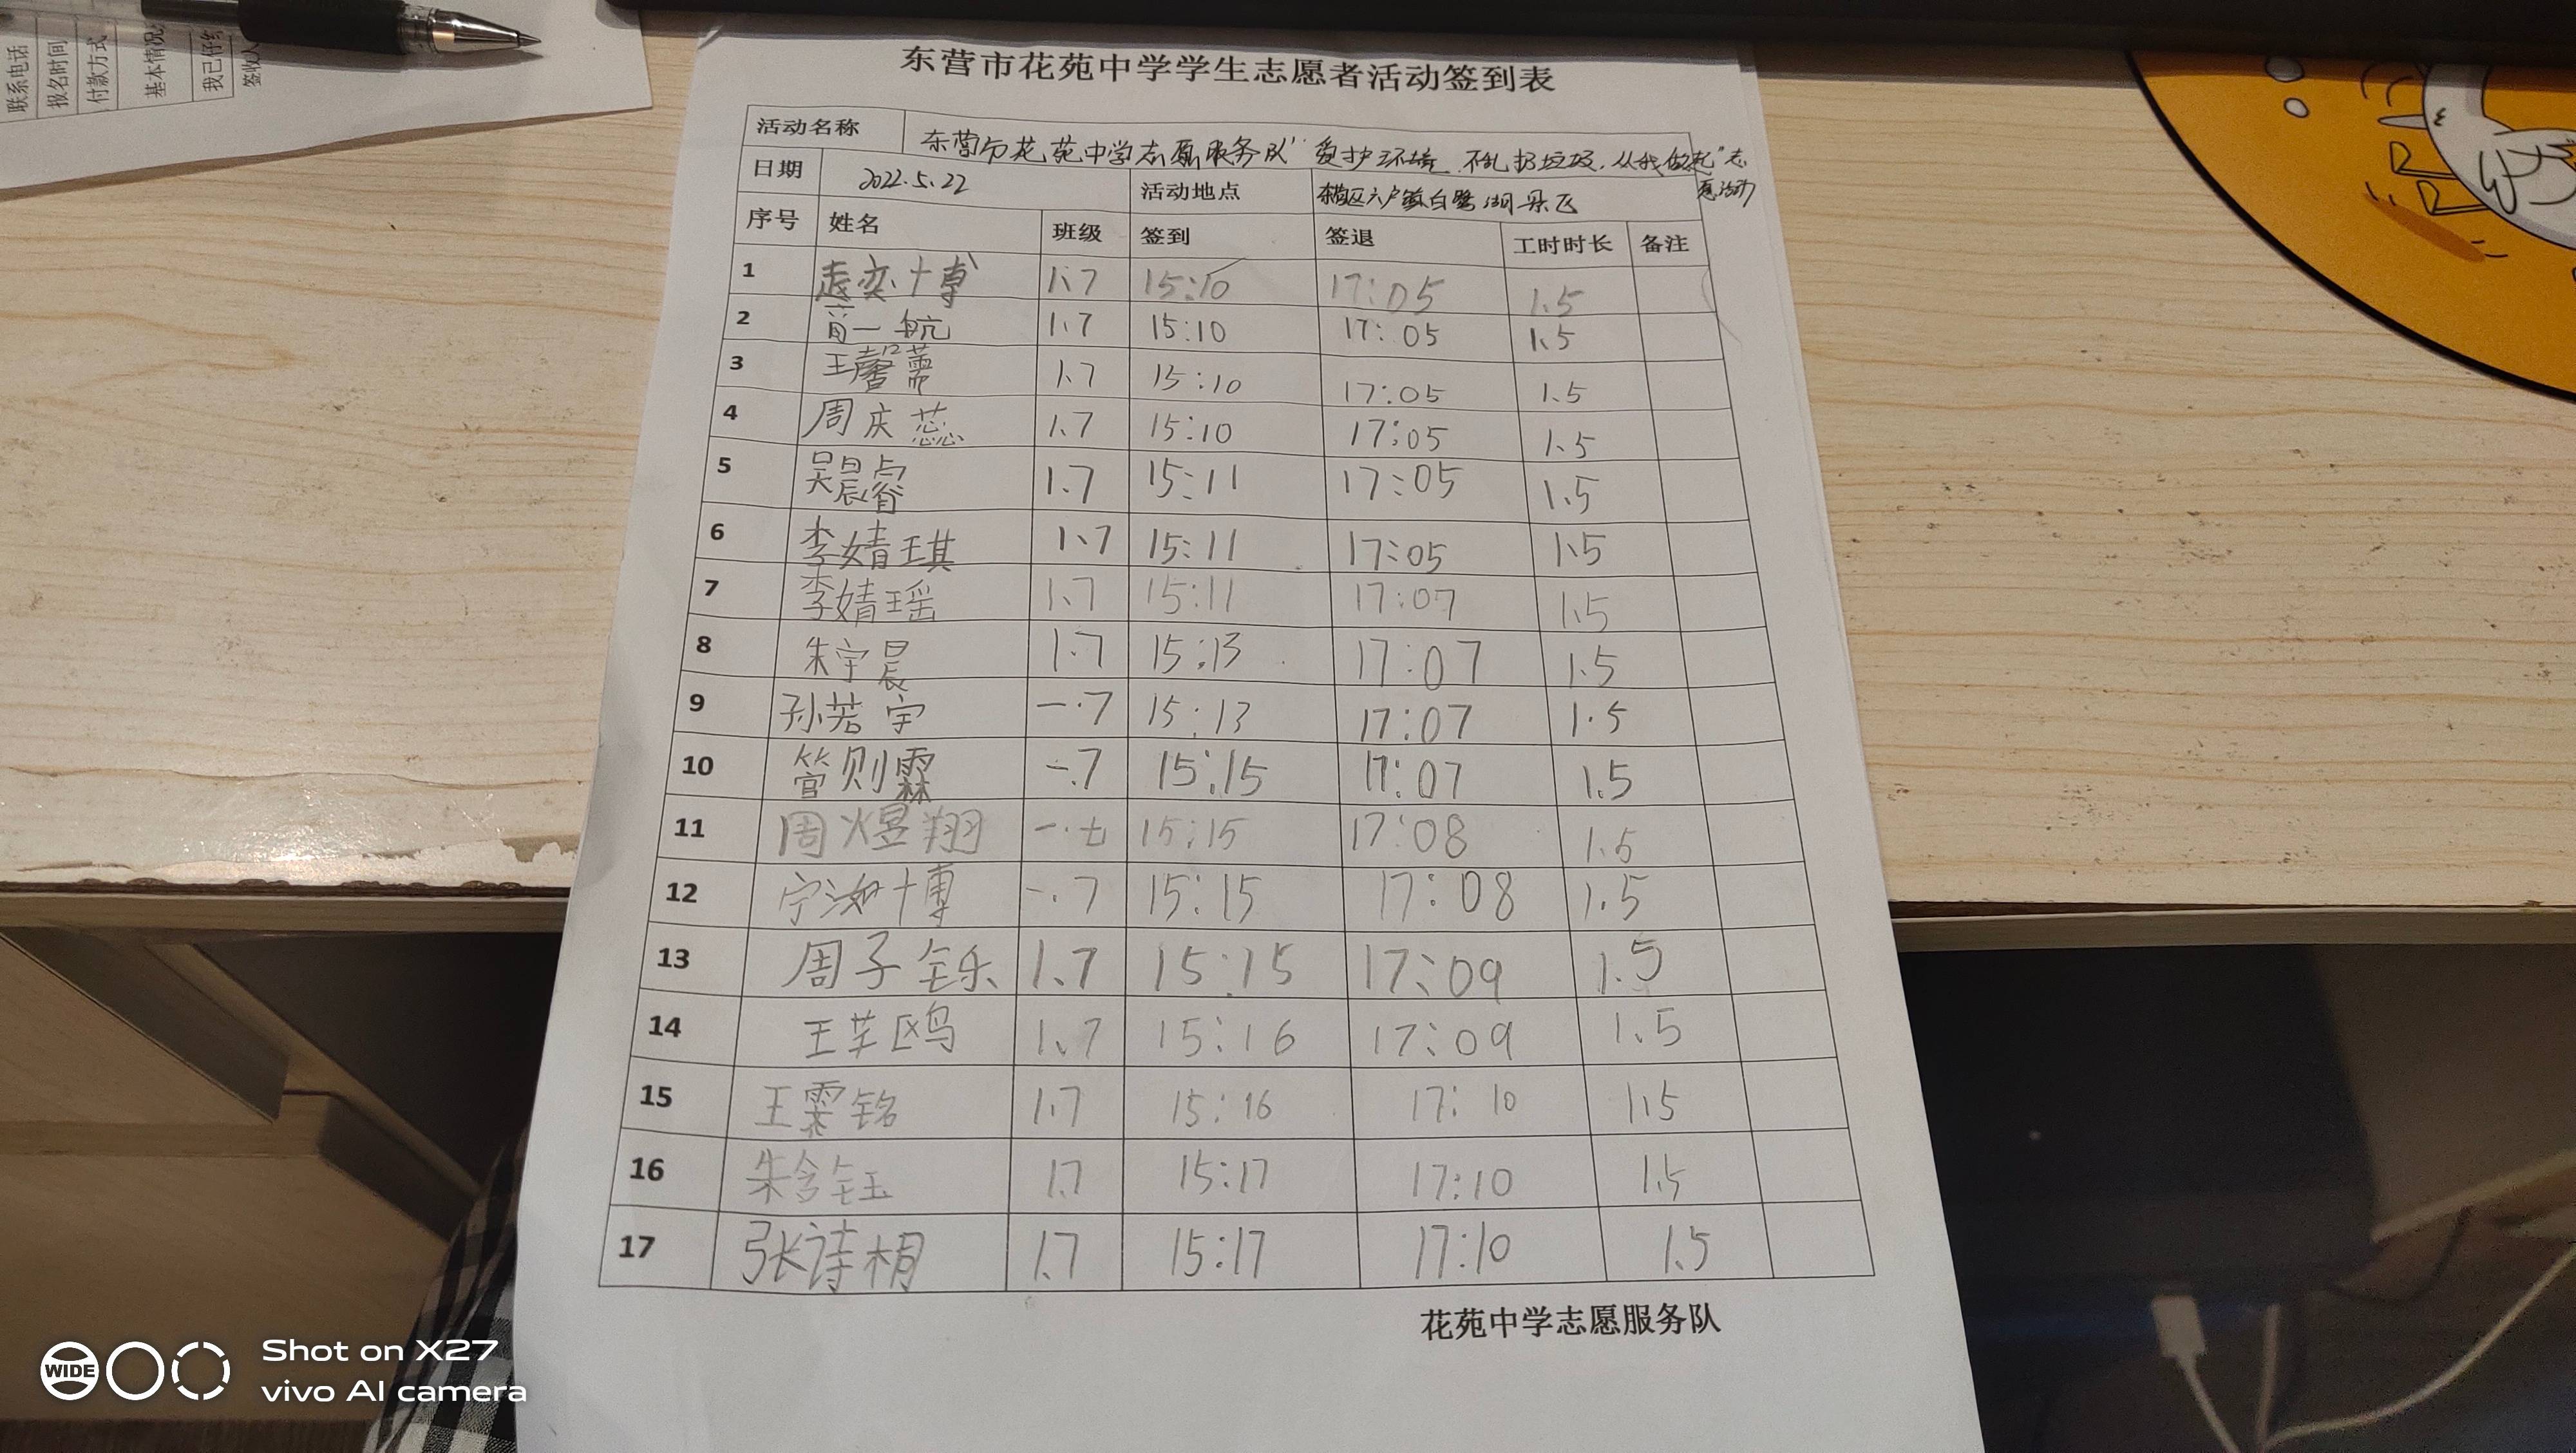 联系电话
报名时间
付款方式
基本情况
我已仔
签收人
东营市花苑中学学生志愿者活动签到表
活动名称 东营市花苑中学志愿服务队“爱护环境、不乱扔垃圾、从我做起”志愿活动
日期 2022.5.22 活动地点 东营区六户镇白鹭湖
序号 姓名 班级 签到 签退 工时时长 备注
1 赵奕博 1.7 15:10 17:05 1.5
2 肖一航 1.7 15:10 17:05 1.5
3 王馨霈 1.7 15:10 17:05 1.5
4 周庆蕊 1.7 15:10 17:05 1.5
5 吴晨睿 1.7 15:11 17:05 1.5
6 李婧琪 1.7 15:11 17:05 1.5
7 李婧瑶 1.7 15:11 17:07 1.5
8 朱宇晨 1.7 15:13 17:07 1.5
9 孙若宇 一.7 15:13 17:07 1.5
10 管则霖 一.7 15:15 17:07 1.5
11 周煜翔 一.七 15:15 17:08 1.5
12 宁汝博 一.7 15:15 17:08 1.5
13 周子铄 1.7 15:15 17:09 1.5
14 王芊鸥 1.7 15:16 17:09 1.5
15 王霁铭 1.7 15:16 17:10 1.5
16 朱含钰 1.7 15:17 17:10 1.5
17 张诗棋 1.7 15:17 17:10 1.5
花苑中学志愿服务队
WIDE
Shot on X27
vivo AI camera